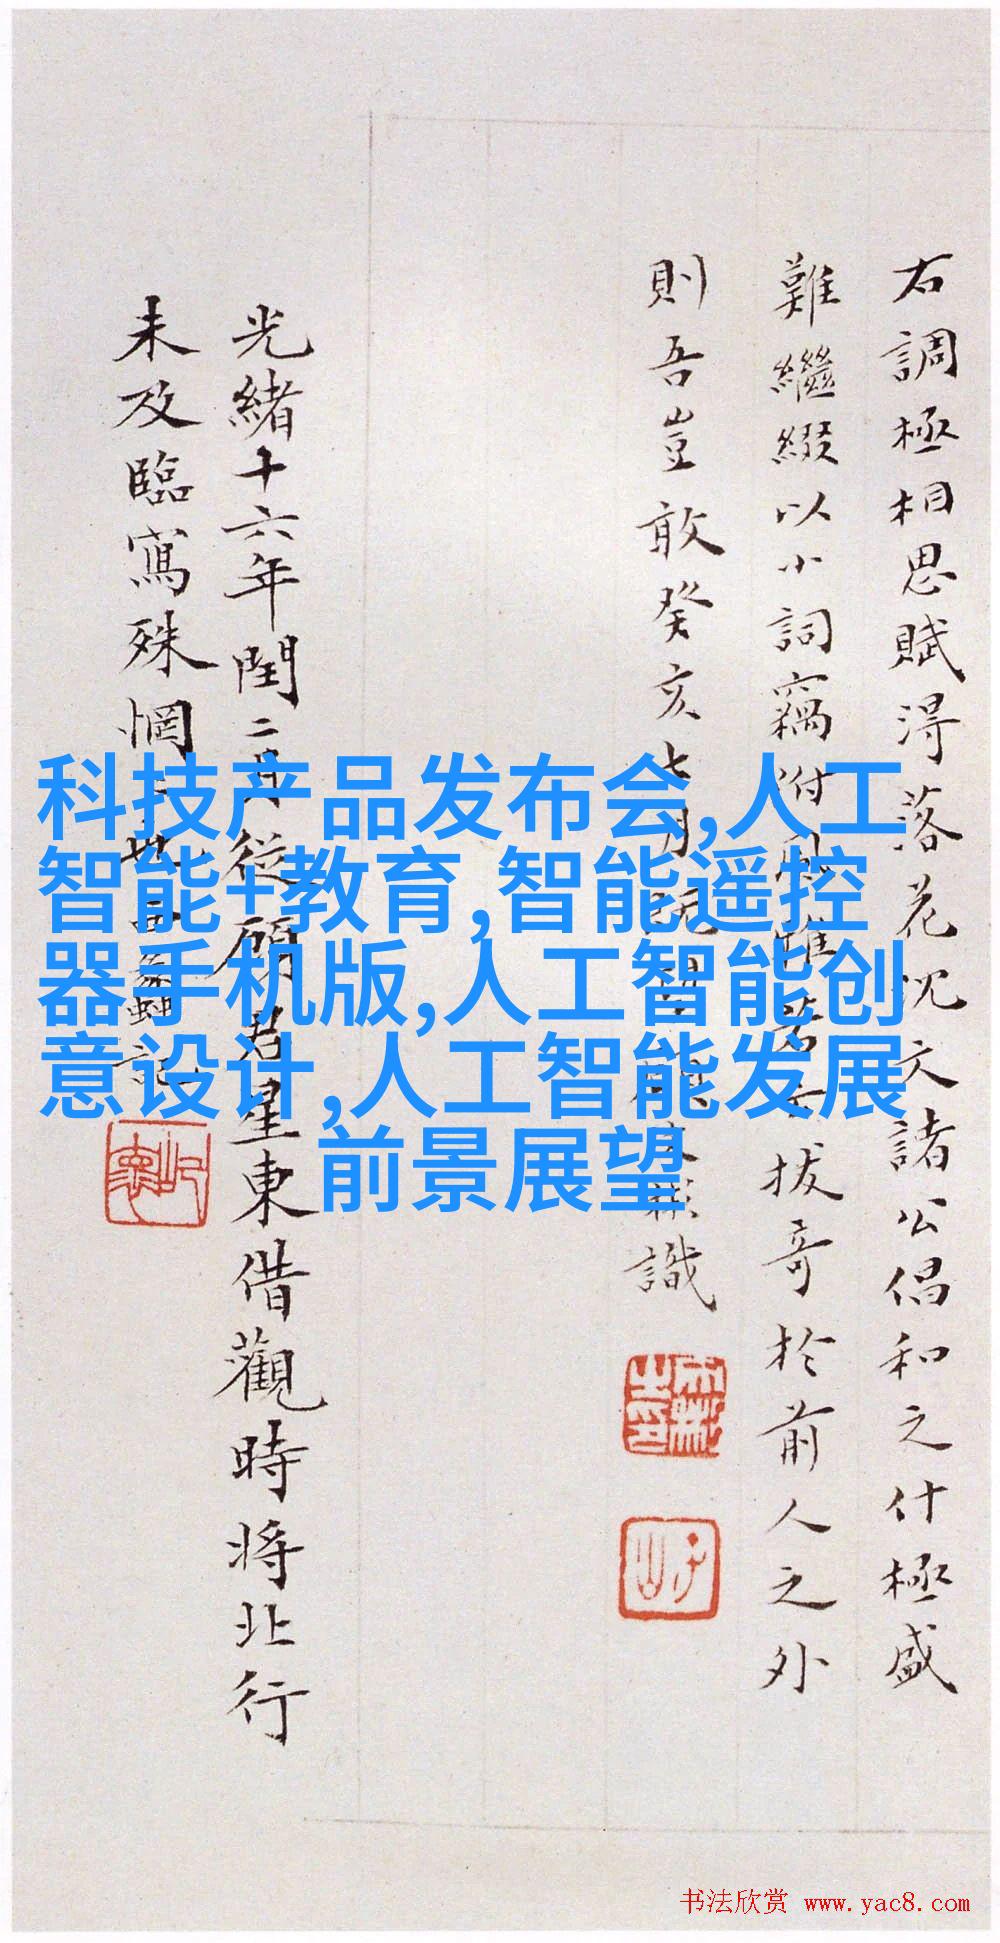 右調極相思賦得落花沈文諸公倡和之什極盛
難繼綴以小詞竊附風雅若云拔奇於前人之外
則吾豈敢癸亥七月既望顧文彬識
光緒十六年閏二月從顧君星東借觀時將北行
未及臨寫殊惘
記
科技产品发布会,人工
智能+教育,智能遥控
器手机版,人工智能创
意设计,人工智能发展
前景展望
书法欣赏 www.yac8.com